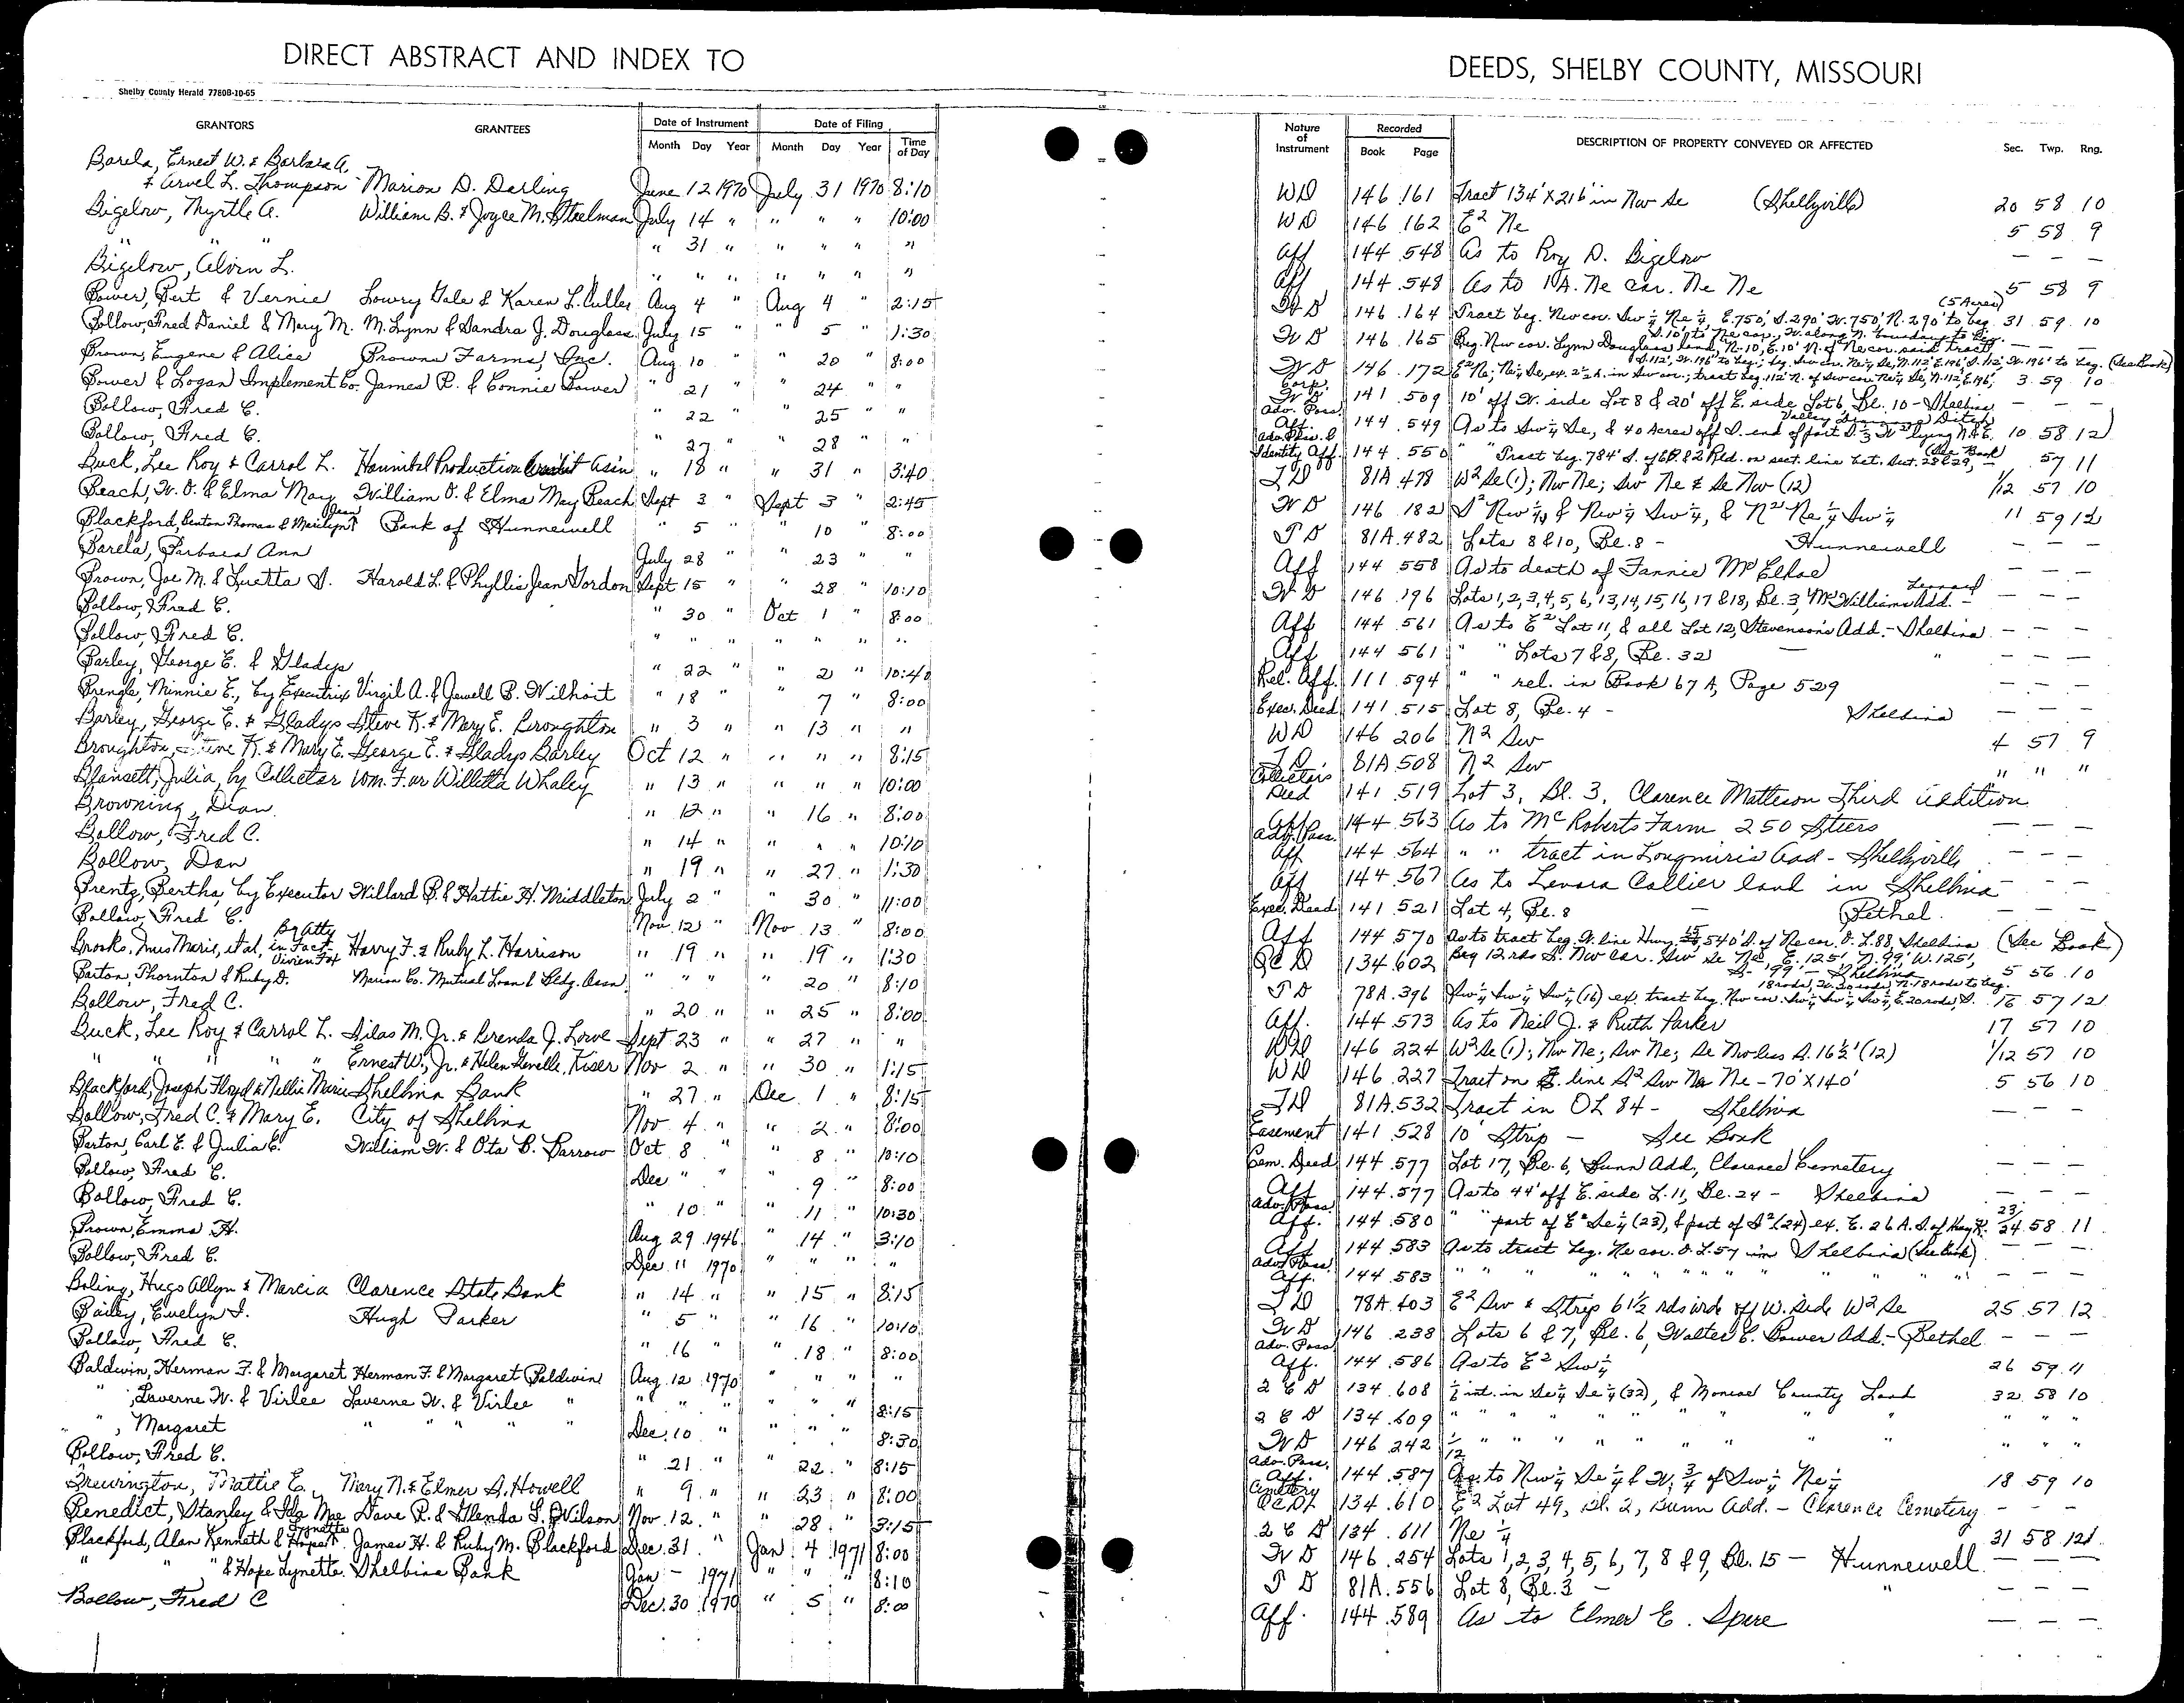 DIRECT ABSTRACT AND INDEX TO
Shelby County Herald 7780B-10-65
GRANTORS GRANTEES Date of Instrument Date of Filing
Month Day Year Month Day Year Time of Day
Barela, Ernest W. & Barbara A.
& Arvel L. Thompson Marion D. Darling June 12 1970 July 31 1970 8:10
Bigelow, Myrtle A. William B. & Joyce M. Steelman July 14 " " " " 10:00
" " " 31 " " " " "
Bigelow, Alvin L. " " " " " " "
Bower, Bert & Vernie Lowry Gale & Karen L. Culler Aug 4 " Aug 4 " 2:15
Bollow, Fred Daniel & Mary M. M. Lynn & Sandra J. Douglass July 15 " " 5 " 1:30
Brown, Eugene & Alice Browns Farms, Inc. Aug 10 " " 20 " 8:00
Bower & Logan Implement Co. James R. & Connie Bower " 21 " 24 " "
Bollow, Fred C. " 22 " 25 " "
Bollow, Fred C. " 27 " 28 " "
Buck, Lee Roy & Carrol L. Hannibal Production Credit Ass'n " 18 " " 31 " 3:40
Beach, W. O. & Elma May William O. & Elma May Beach Sept 3 " Sept 3 " 2:45
Blackford, Benton Thomas & Marilynn Jean Bank of Hunnewell " 5 " " 10 " 8:00
Barela, Barbara Ann July 28 " " 23 " "
Brown, Joe M. & Luetta S. Harold L. & Phyllis Jean Gordon Sept 15 " " 28 " 10:10
Bollow, Fred C. " 30 " Oct 1 " 8:00
Bollow, Fred C. " " " " " " "
Barley, George E. & Gladys " 22 " " 2 " 10:40
Brengle, Minnie E., by Executrix Virgil A. & Jewell B. Wilhoit " 18 " " 7 " 8:00
Barley, George E. & Gladys Steve K. & Mary E. Broughton " 3 " 13 " "
Broughton, Steve K. & Mary E. George E. & Gladys Barley Oct 12 " " " " 8:15
Blansett, Julia, by Collector Wm. F. or Willetta Whaley " 13 " " " " 10:00
Browning, Dian " 12 " " 16 " 8:00
Bollow, Fred C. " 14 " " " " 10:10
Bollow, Dan " 19 " " 27 " 1:30
Brentz, Bertha, by Executor Willard B. & Hattie H. Middleton July 2 " " 30 " 11:00
Bollow, Fred C. Nov. 12 " Nov. 13 " 8:00
Brooks, Inus Marie, et al, by Atty in Fact Vivien Fox Harry F. & Ruby L. Harrison " 19 " " 19 " 1:30
Barton, Thornton & Ruby D. Marion Co. Mutual Loan & Bldg. Assn. " " " " 20 " 8:10
Bollow, Fred C. " 20 " " 25 " 8:00
Buck, Lee Roy & Carrol L. Silas M. Jr. & Brenda J. Lowe Sept 23 " " 27 " "
" " " " " Ernest W., Jr. & Helen Genelle Kiser Nov 2 " " 30 " 1:15
Blackford, Joseph Floyd & Nellie Marie Shelbina Bank " 27 " Dec. 1 " 8:15
Bollow, Fred C. & Mary E. City of Shelbina Nov. 4 " " 2 " 8:00
Barton, Carl E. & Julia E. William W. & Ota B. Barrow Oct 8 " " 8 " 10:10
Bollow, Fred C. Dec " " " 9 " 8:00
Bollow, Fred C. " 10 " " 11 " 10:30
Brown, Emma H. Aug 29 1946 " 14 " 3:10
Bollow, Fred C. Dec. 11 1970 " " " "
Boling, Hugo Allyn & Marcia Clarence State Bank " 14 " " 15 " 8:15
Bailey, Evelyn I. Hugh Parker " 5 " " 16 " 10:10
Bollow, Fred C. " 16 " " 18 " 8:00
Baldwin, Herman F. & Margaret Herman F. & Margaret Baldwin Aug. 12 1970 " " " "
" , Laverne W. & Virlee Laverne W. & Virlee " " " " " " " 8:15
" , Margaret " " " " Dec. 10 " " " " 8:30
Bollow, Fred C. " 21 " " 22 " 8:15
Brewington, Mattie E. Mary N. & Elmer S. Howell " 9 " " 23 " 8:00
Benedict, Stanley & Ida Mae Dave R. & Glenda S. Wilson Nov. 12 " " 28 " 3:15
Blackford, Alan Kenneth & Hope Lynette James H. & Ruby M. Blackford Dec. 31 " Jan 4 1971 8:00
" " " & Hope Lynette Shelbina Bank Jan - 1971 " " " 8:10
Bollow, Fred C Dec. 30 1970 " 5 " 8:00
DEEDS, SHELBY COUNTY, MISSOURI
Nature of Instrument Recorded DESCRIPTION OF PROPERTY CONVEYED OR AFFECTED Sec. Twp. Rng.
Book Page
WD 146 161 Tract 134' X 216' in Nw Se (Shelbyville) 20 58 10
WD 146 162 E² Ne 5 58 9
Aff 144 548 As to Roy D. Bigelow — — —
Aff 144 548 As to 10A. Ne cor. Ne Ne 5 58 9
WD 146 164 Tract beg. Nw cor. Sw¼ Ne¼, E. 750', S. 290' W. 750' N. 290' to beg. (5 Acres) 31 59 10
WD 146 165 Beg. Nw cor. Lynn Douglass land, N. 10, E. 10' N. of Ne cor. said tract, S. 10' to Ne cor., W. along N. boundary to beg. — — —
WD 146 172 E² Ne; Ne¼ Se, ex. 2½ A. in Sw cor.; tract beg. 112' N. of Sw cor. Ne¼ Se, N. 112', E. 196', S. 112', W. 196' to beg. (See Book) 3 59 10
Corp. WD 141 509 10' off W. side Lot 8 & 20' off E. side Lot 6, Bl. 10 - Shelbina — — —
Adv. Poss. Aff. 144 549 As to Sw¼ Se, & 40 Acres off S. end of part S. ½ W² lying N. & E. Valley Drainage Ditch 10 58 12
Adv. Poss. & Identity Aff. 144 550 " " Tract beg. 784' S. of & 2 Rd. on sect. line bet. Sect. 28 & 29, (See Book) — 57 11
TD 81A 478 W² Se (1); Nw Ne; Sw Ne & Se Nw (12) 1/12 57 10
WD 146 182 S² Nw¼, & Nw¼ Sw¼, & N² Ne¼ Sw¼ 11 59 12
TD 81A 482 Lots 8 & 10, Bl. 8 - Hunnewell — — —
Aff 144 558 As to death of Fannie McElhoe — — —
WD 146 196 Lots 1, 2, 3, 4, 5, 6, 13, 14, 15, 16, 17 & 18, Bl. 3, McWilliams Add. - Leonard — — —
Aff 144 561 As to E² Lot 11, & all Lot 12, Stevenson's Add. - Shelbina — — —
Aff 144 561 " " Lots 7 & 8, Bl. 32 — " — — —
Rel. Aff. 111 594 " " rel. in Book 67 A, Page 529 — — —
Exec. Deed 141 515 Lot 8, Bl. 4 - Shelbina — — —
WD 146 206 N² Sw 4 57 9
TD 81A 508 N² Sw " " "
Collector's Deed 141 519 Lot 3, Bl. 3, Clarence Matteson Third Addition
Aff 144 563 As to McRoberts Farm 250 Steers — — —
Adv. Poss. Aff 144 564 " " tract in Longmire's Add - Shelbyville — — —
Aff 144 567 As to Lenora Collier land in Shelbina — — —
Exec. Deed 141 521 Lot 4, Bl. 8 — Bethel — — —
Aff 144 570 As to tract beg. W. line Hwy. 15, 540' S. of Ne cor. O. L. 88, Shelbina (See Book)
QCD 134 602 Beg 12 rds S. Nw cor. Sw Se Ne, E. 125', N. 99', W. 125', S. 99' - Shelbina 5 56 10
TD 78A 396 Sw¼ Sw¼ Sw¼ (16) ex. tract beg. Nw cor. Sw¼ Sw¼ Sw¼, E. 20 rods, S. 18 rods, W. 20 rods, N. 18 rods to beg. 16 57 12
Aff. 144 573 As to Neil J. & Ruth Parker 17 57 10
WD 146 224 W² Se (1); Nw Ne; Sw Ne; Se Nw less S. 16½' (12) 1/12 57 10
WD 146 227 Tract on E. line S² Sw Ne Ne - 70' X 140' 5 56 10
TD 81A 532 Tract in OL 84 - Shelbina — — —
Easement 141 528 10' Strip - See Book
Cem. Deed 144 577 Lot 17, Bl. 6, Dunn Add., Clarence Cemetery — — —
Aff 144 577 As to 44' off E. side L. 11, Bl. 24 - Shelbina — — —
Adv. Poss. Aff. 144 580 " " part of E² Se¼ (23), & part of S² (24) ex. E. 26 A. S. of Hwy. 23/24 58 11
Aff 144 583 As to tract beg. Ne cor. O. L. 57 in Shelbina (See Book) — — —
Adv. Poss. Aff. 144 583 " " " " " " " " " " — — —
TD 78A 403 E² Sw & Strip 6½ rds wide off W. side W² Se 25 57 12
WD 146 238 Lots 6 & 7, Bl. 6, Walter C. Bower Add. - Bethel — — —
Adv. Poss. Aff. 144 586 As to E² Sw¼ 26 59 11
2CD 134 608 ⅙ int. in Se¼ Se¼ (32), & Monroe County Land 32 58 10
2CD 134 609 " " " " " " " " " "
WD 146 242 1/12 " " " " " " " " " "
Adv. Poss. Aff. 144 587 As to Nw¼ Se¼ & W. ¾ of Sw¼ Ne¼ 18 59 10
Cemetery QCD 134 610 E² Lot 49, Bl. 2, Dunn Add. - Clarence Cemetery — — —
2CD 134 611 Ne ¼ 31 58 12
WD 146 254 Lots 1, 2, 3, 4, 5, 6, 7, 8 & 9, Bl. 15 - Hunnewell — — —
TD 81A 556 Lot 8, Bl. 3 - " — — —
Aff. 144 589 As to Elmer E. Spere — — —